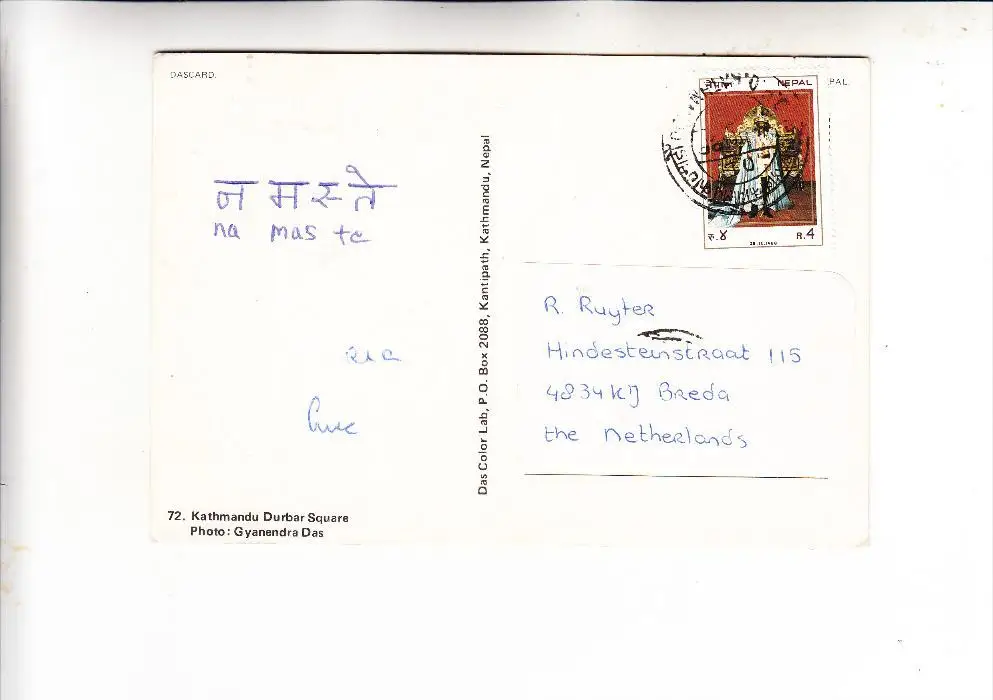 DASCARD.
NEPAL
PAL
रु.४ R.4
न मस्ते
na mas te
R. Ruyter
Hindesteinstraat 115
4834 KJ Breda
the Netherlands
Das Color Lab, P.O. Box 2088, Kantipath, Kathmandu, Nepal
72. Kathmandu Durbar Square
Photo: Gyanendra Das